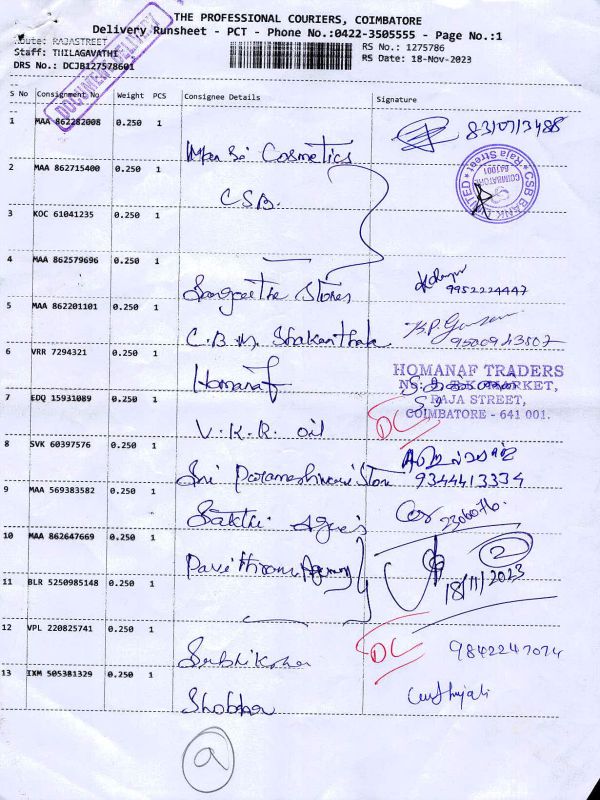 THE PROFESSIONAL COURIERS, COIMBATORE
Delivery Runsheet - PCT - Phone No.:0422-3505555 - Page No.:1
Route: RAJASTREET
RS No.: 1275786
Staff: THILAGAVATHI
RS Date: 18-Nov-2023
DRS No.: DCJB127578601
DOCUMENT DELIVERY
S No Consignment No Weight PCS Consignee Details Signature
1 MAA 862282008 0.250 1 Cosmetics 83
2 MAA 862715400 0.250 1 C.S.B.
CSB BANK LIMITED Raja Street COIMBATORE 641001
3 KOC 61041235 0.250 1
4 MAA 862579696 0.250 1 Sangeetha Stores 9952224447
5 MAA 862201101 0.250 1 C.B.M. Shakanthala
6 VRR 7294321 0.250 1 Homanaf
HOMANAF TRADERS
MARKET,
RAJA STREET,
COIMBATORE - 641 001.
7 EDQ 15931089 0.250 1 V.K.R. oil DC
8 SVK 60397576 0.250 1 Sri Parameshwari Store 9344413334
9 MAA 569383582 0.250 1 Sakthi 2306076
10 MAA 862647669 0.250 1 Agency 2
18/11/2023
11 BLR 5250985148 0.250 1
12 VPL 220825741 0.250 1 Subhiksha DC 9842247074
13 IXM 505381329 0.250 1 Shobha
a